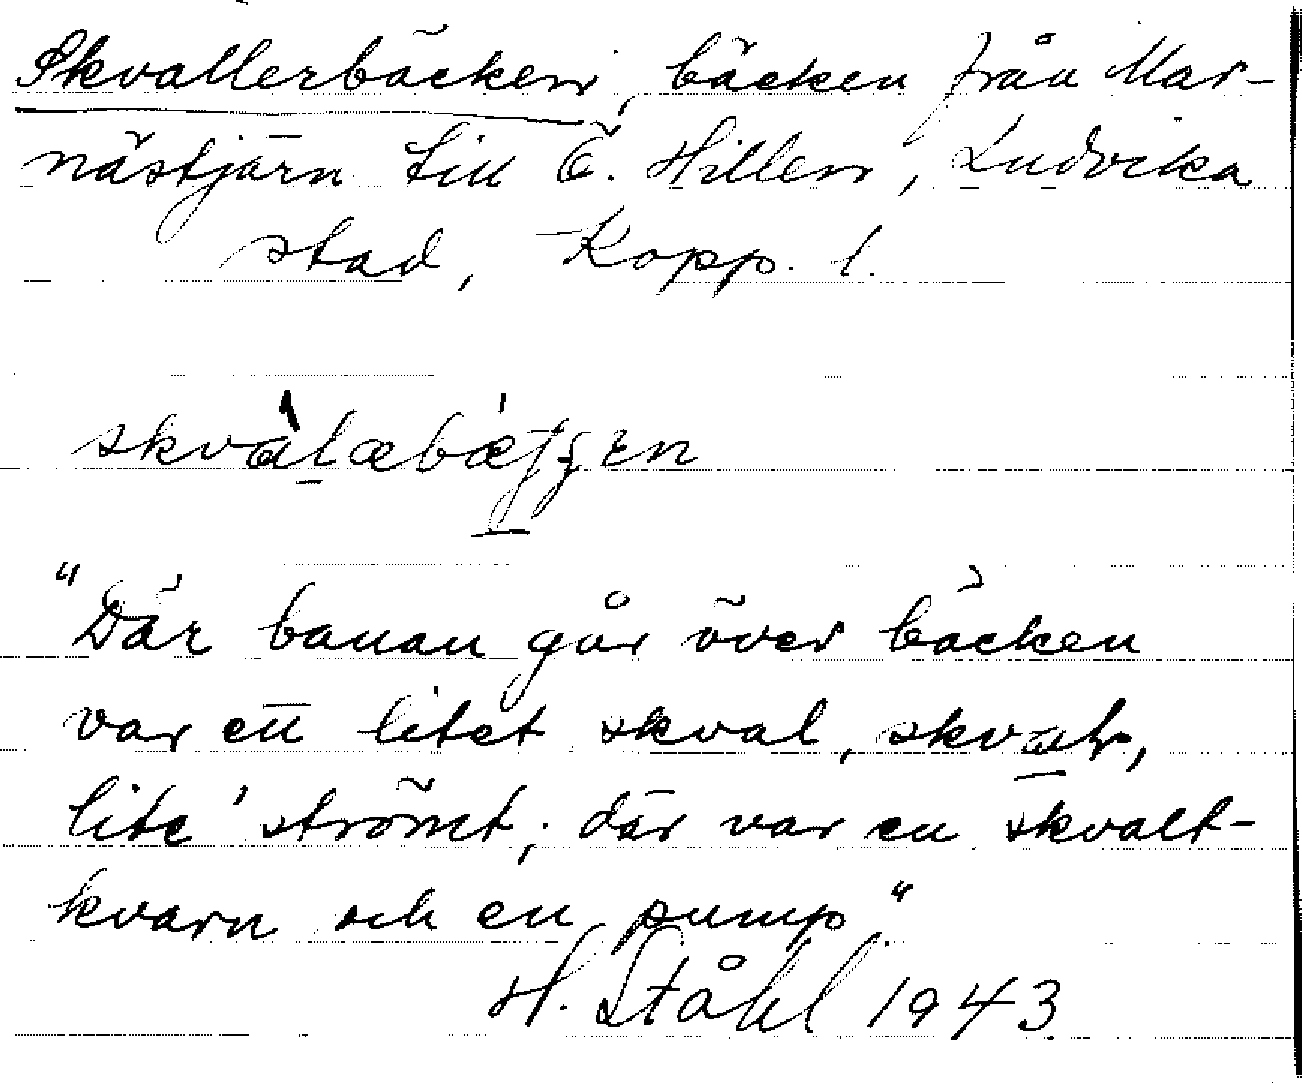 Skvallerbäcken, bäcken från Mar-
nästjärn till Ö. Hillen, Ludvika
stad, Kopp. l.
"Där banan går över bäcken
var ett litet skval, skvalr,
lite' strömt; där var en skvalt-
kvarn och en pump."
H. Ståhl 1943